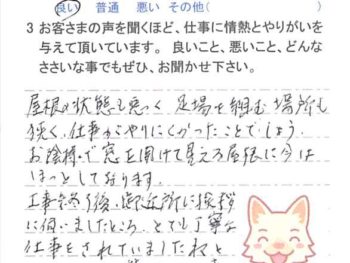 良い 普通 悪い その他( )
3 お客さまの声を聞くほど、仕事に情熱とやりがいを
与えて頂いています。 良いこと、悪いこと、どんな
ささいな事でもぜひ、お聞かせ下さい。
屋根の状態も悪く 足場を組む場所も
狭く、仕事がやりにくかったことでしょう。
お陰様で窓を開けて見える屋根に今は
ほっとしております。
工事終了後、御近所に挨拶
に伺いましたところ、とても丁寧な
仕事をされていましたねと